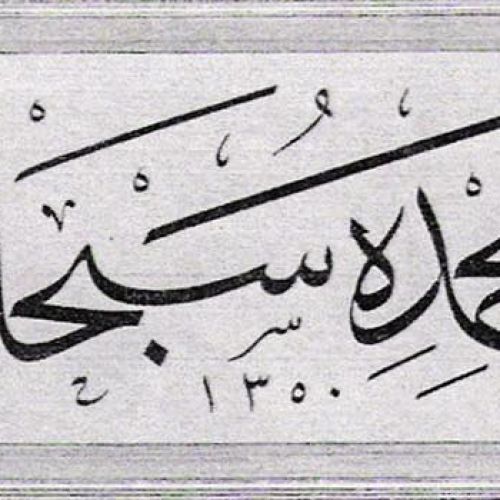 بحَمْدِهِ سُبْحَا
١٣٥٠